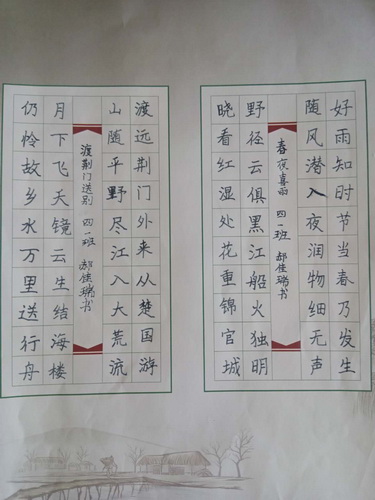 好雨知时节当春乃发生
随风潜入夜润物细无声
春夜喜雨 四一班 郝佳瑞书
野径云俱黑江船火独明
晓看红湿处花重锦官城
渡远荆门外来从楚国游
山随平野尽江入大荒流
渡荆门送别 四一班 郝佳瑞书
月下飞天镜云生结海楼
仍怜故乡水万里送行舟